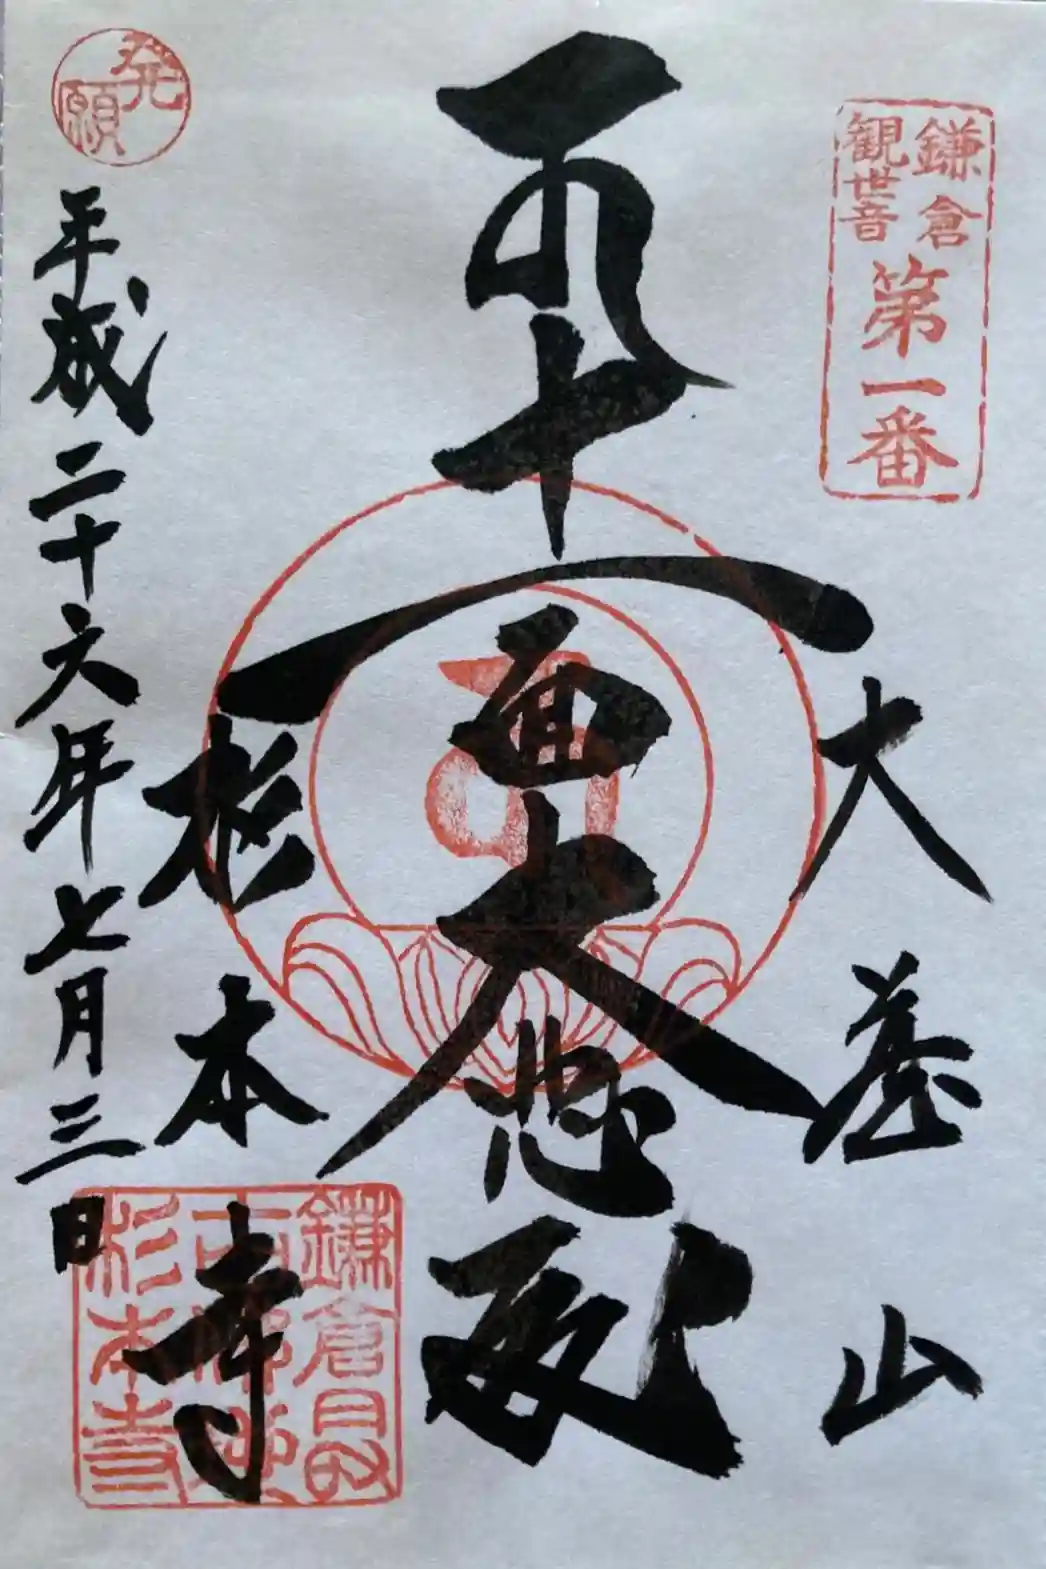 鎌倉
観世音
第一番
大蔵山
十一面大悲殿
杉本寺
発願
平成二十六年七月三日
鎌倉
杉本寺